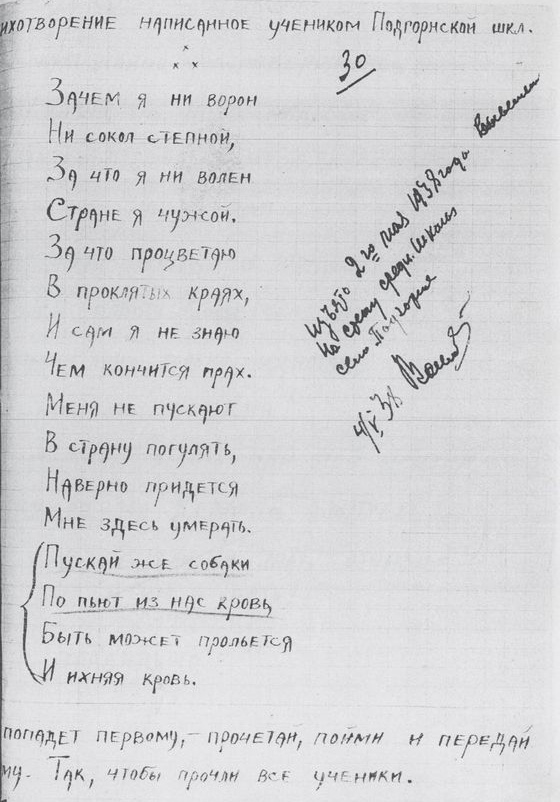 ихотворение написанное учеником Подгорнской шкл.
30
Зачем я ни ворон
Ни сокол степной,
За что я ни волен
Стране я чужой.
За что процветаю
В проклятых краях,
И сам я не знаю
Чем кончится прах.
Меня не пускают
В страну погулять,
Наверно придется
Мне здесь умерать.
Пускай же собаки
По пьют из нас кровь
Быть может прольется
И ихняя кровь.
изъято 2го мая 1938 года
на средн. школы
село Подгорня
4/V 38
попадет первому,- прочетай, пойми и передай
му. Так, чтобы прочли все ученики.